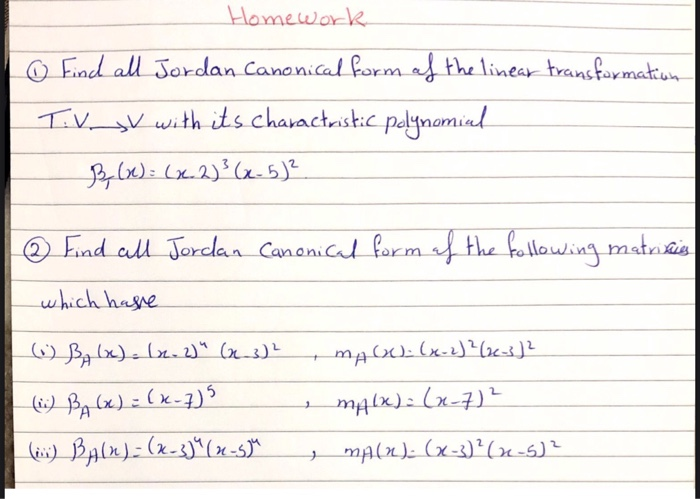 Homework
① Find all Jordan Canonical form of the linear transformation
T:V→V with its charactristic polynomial
β_T(x) = (x-2)³(x-5)².
② Find all Jordan Canonical form of the following matrixies
which have
(i) β_A(x) = (x-2)⁴ (x-3)² , m_A(x) = (x-2)²(x-3)²
(ii) β_A(x) = (x-7)⁵ , m_A(x) = (x-7)²
(iii) β_A(x) = (x-3)⁴(x-5)⁴ , m_A(x) = (x-3)²(x-5)²